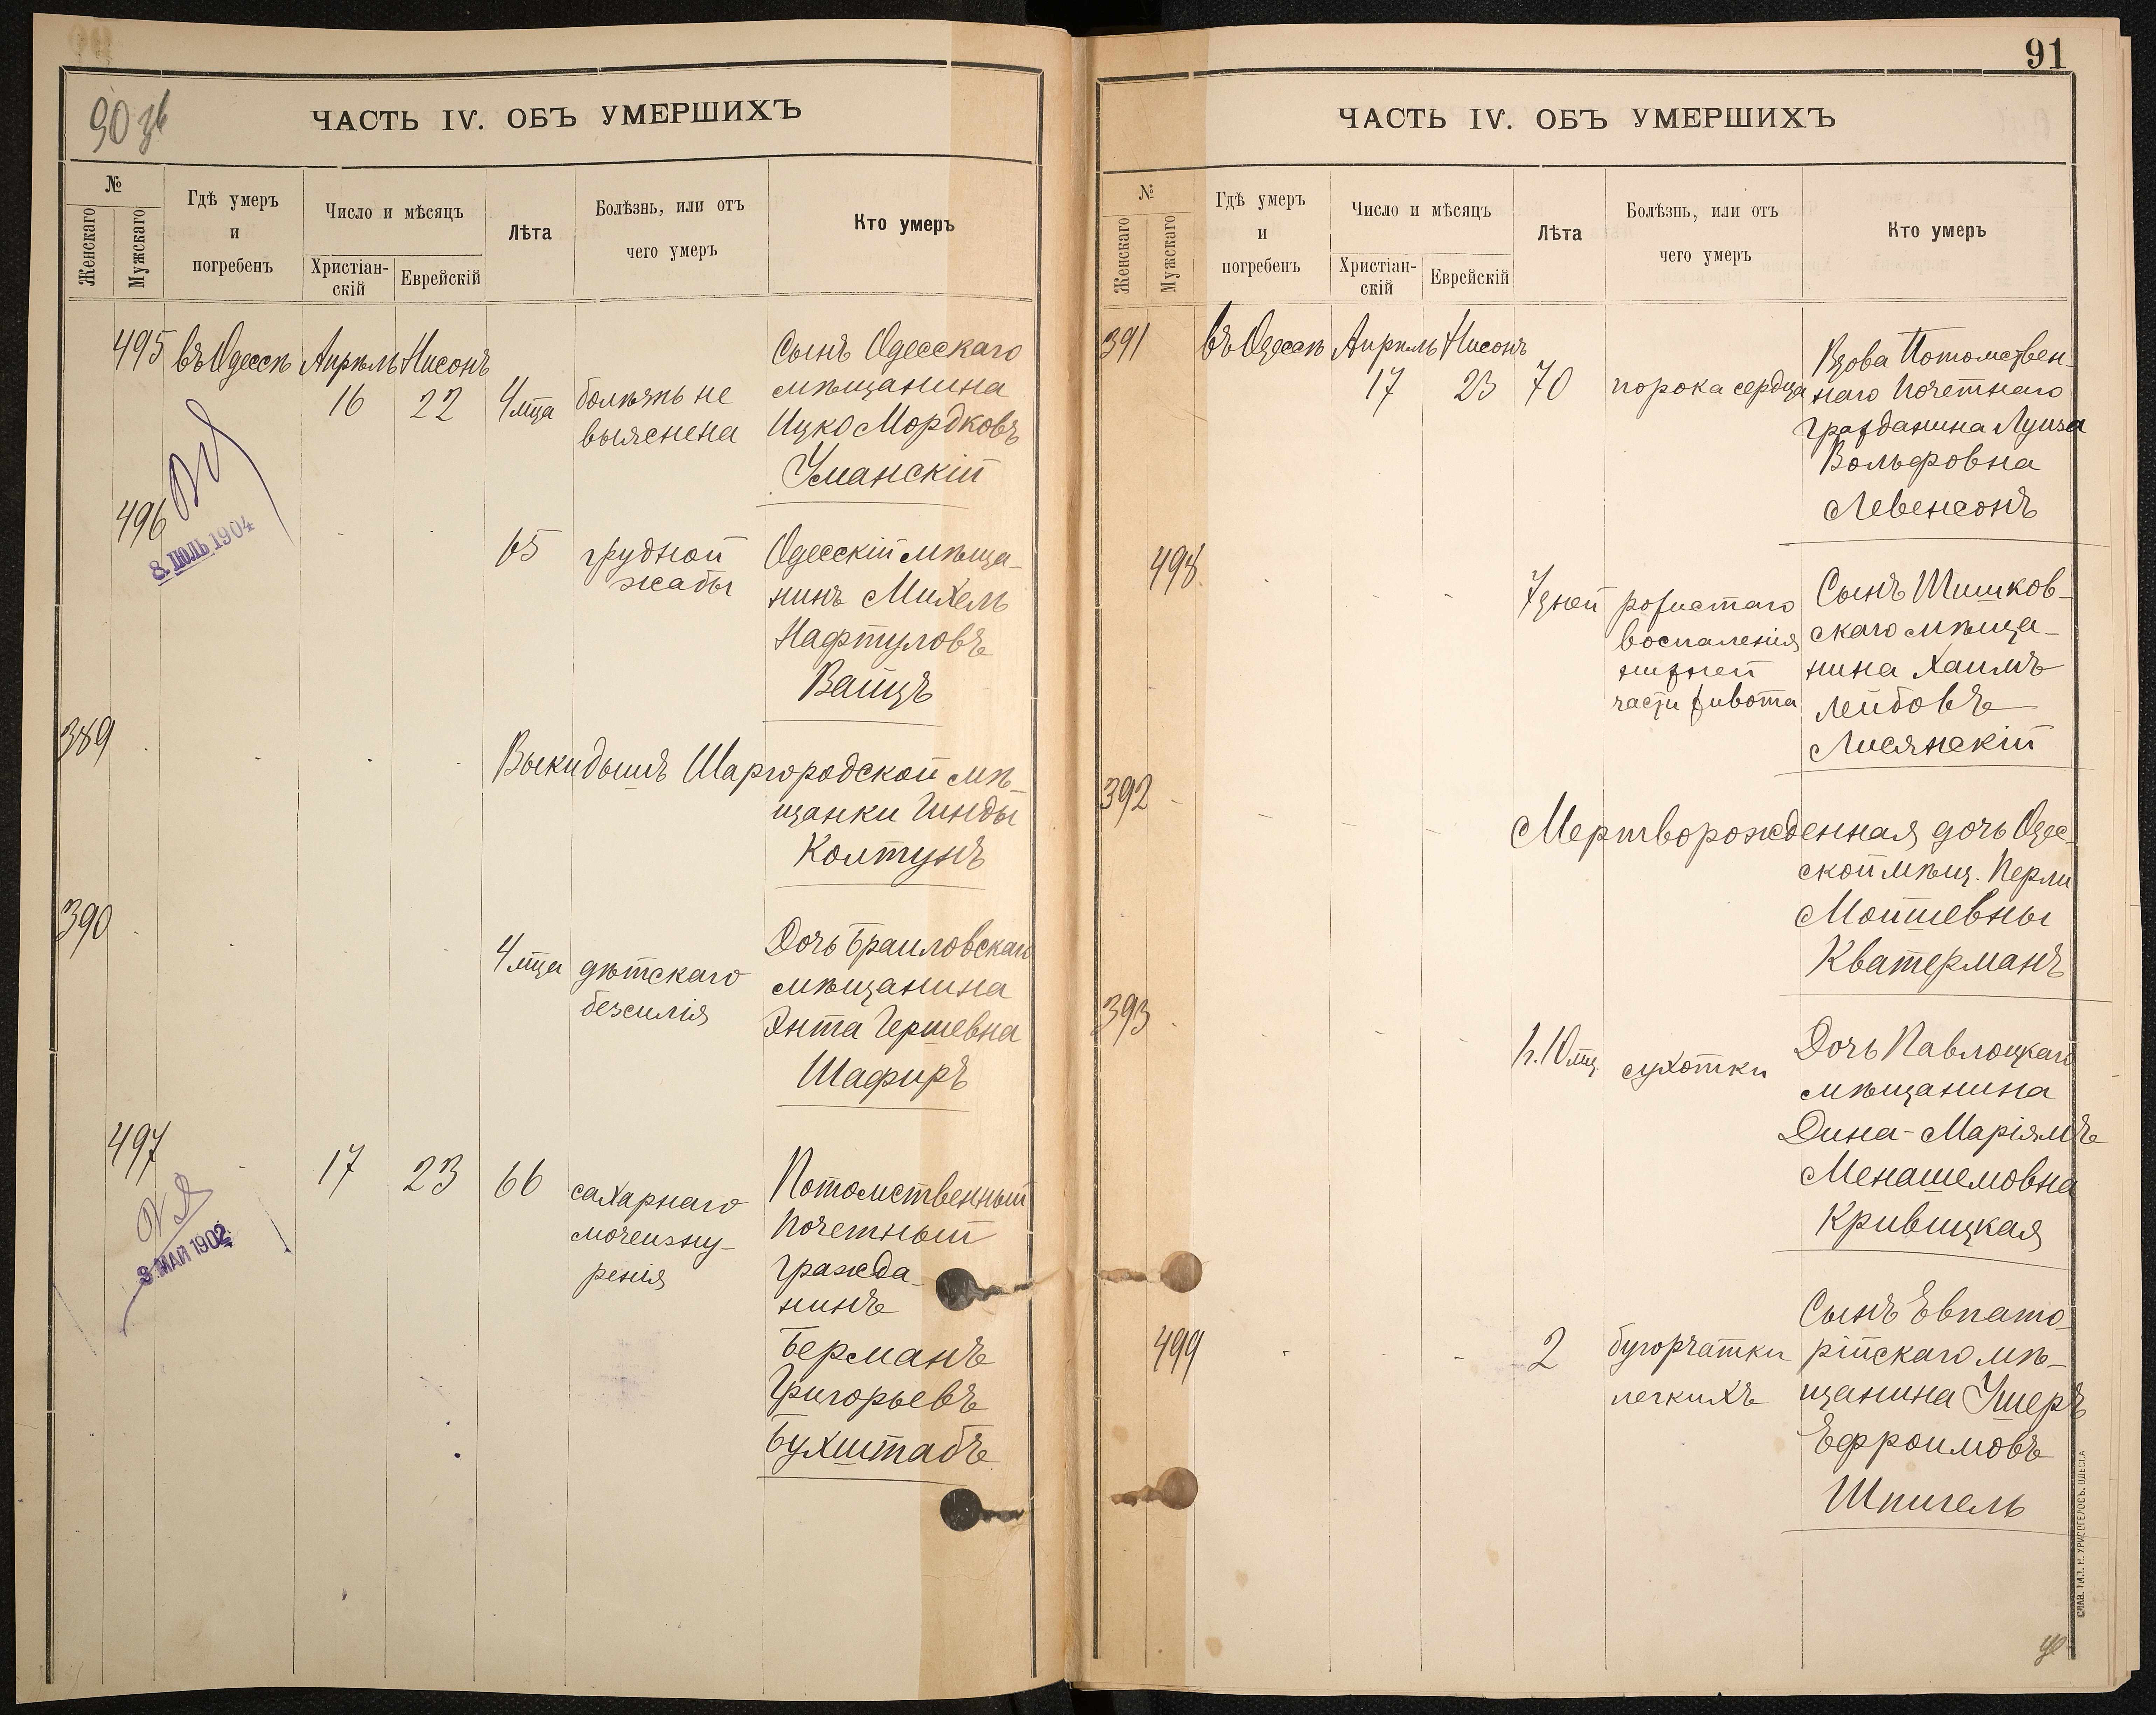 90 зв
ЧАСТЬ IV. ОБЪ УМЕРШИХЪ
№
Женскаго
Мужскаго
Гдѣ умеръ
и
погребенъ
Число и мѣсяцъ
Христіан-
скій
Еврейскій
Лѣта
Болѣзнь, или отъ
чего умеръ
Кто умеръ
495 въ Одессѣ Апрѣль Нисонъ
16 22 4 мца
болѣзнь не
выяснена
Сынъ Одесскаго
мѣщанина
Ицко Мордковъ
Уманскій
496
8. ІЮЛЬ 1904
65
грудной
жабы
Одесскій мѣща-
нинъ Михель
Нафтуловъ
Вайцъ
389
Выкидышъ Шаргородской мѣ-
щанки Гинды
Колтунъ
390
4 мца
дѣтскаго
безсилія
Дочь Браиловскаго
мѣщанина
Энта Гершевна
Шафиръ
497
3. МАЙ 1902
17 23 66
сахарнаго
мочеизну-
ренія
Потомственный
почетный
гражда-
нинъ
Берманъ
Григорьевъ
Бухштабъ
91
ЧАСТЬ IV. ОБЪ УМЕРШИХЪ
№
Женскаго
Мужскаго
Гдѣ умеръ
и
погребенъ
Число и мѣсяцъ
Христіан-
скій
Еврейскій
Лѣта
Болѣзнь, или отъ
чего умеръ
Кто умеръ
391 въ Одессѣ Апрѣль Нисонъ
17 23 70 порока сердца
Вдова Потомствен-
наго почетнаго
гражданина Луиза
Вольфовна
Левенсонъ
498.
7 дней
рожистаго
воспаленія
нижней
части живота
Сынъ Шишков-
скаго мѣща-
нина Хаимъ
Лейбовъ
Лисянскій
392
Мертворожденная дочь Одес-
ской мѣщ. Перли
Мошшевны
Кватерманъ
393
1 г. 10 мц. сухотки
Дочь Павлоцкаго
мѣщанина
Дина-Маріямъ
Менашемовна
Кривицкая
499
2
бугорчатки
легкихъ
Сынъ Евпато-
рійскаго мѣ-
щанина Ушеръ
Ефроимовъ
Шпигель
СЛАВ. ТИП. Н. ХРИСОГЕЛОСЪ. ОДЕССА